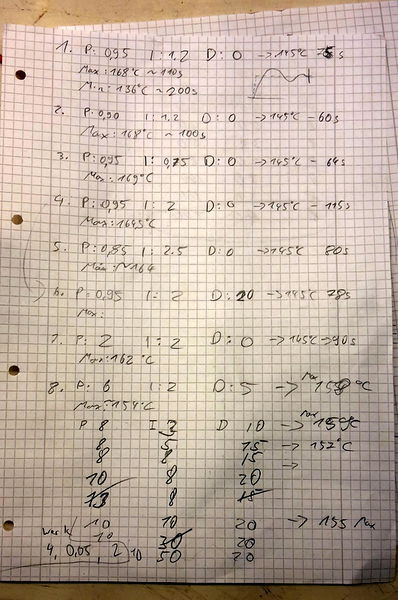 1. P: 0,95 I: 1.2 D: 0 → 145°C 75 s
Max: 168°C ~ 110s
Min: 136°C ~ 200s
2. P: 0,90 I: 1.2 D: 0 → 145°C - 60s
Max: 168°C ~ 100s
3. P: 0,95 I: 0,75 D: 0 → 145°C - 64s
Max: 169°C
4. P: 0,95 I: 2 D: 0 → 145°C - 115s
Max: 164,5°C
5. P: 0,85 I: 2.5 D: 0 → 145°C 80s
Max: ~164
6. P: 0,95 I: 2 D: 20 → 145°C 78s
Max:
7. P: 2 I: 2 D: 0 → 145°C → 90s
Max: 162°C
8. P: 6 I: 2 D: 5 → Max 158°C
Max: 154°C
P 8 I 3 D 10 → Max 159°C
8 5 15 → 152°C
8 8 15 →
10 8 20
13 8 15
10 10 20 → 155 Max
10 30 20
4, 0,05, 2 10 50 20